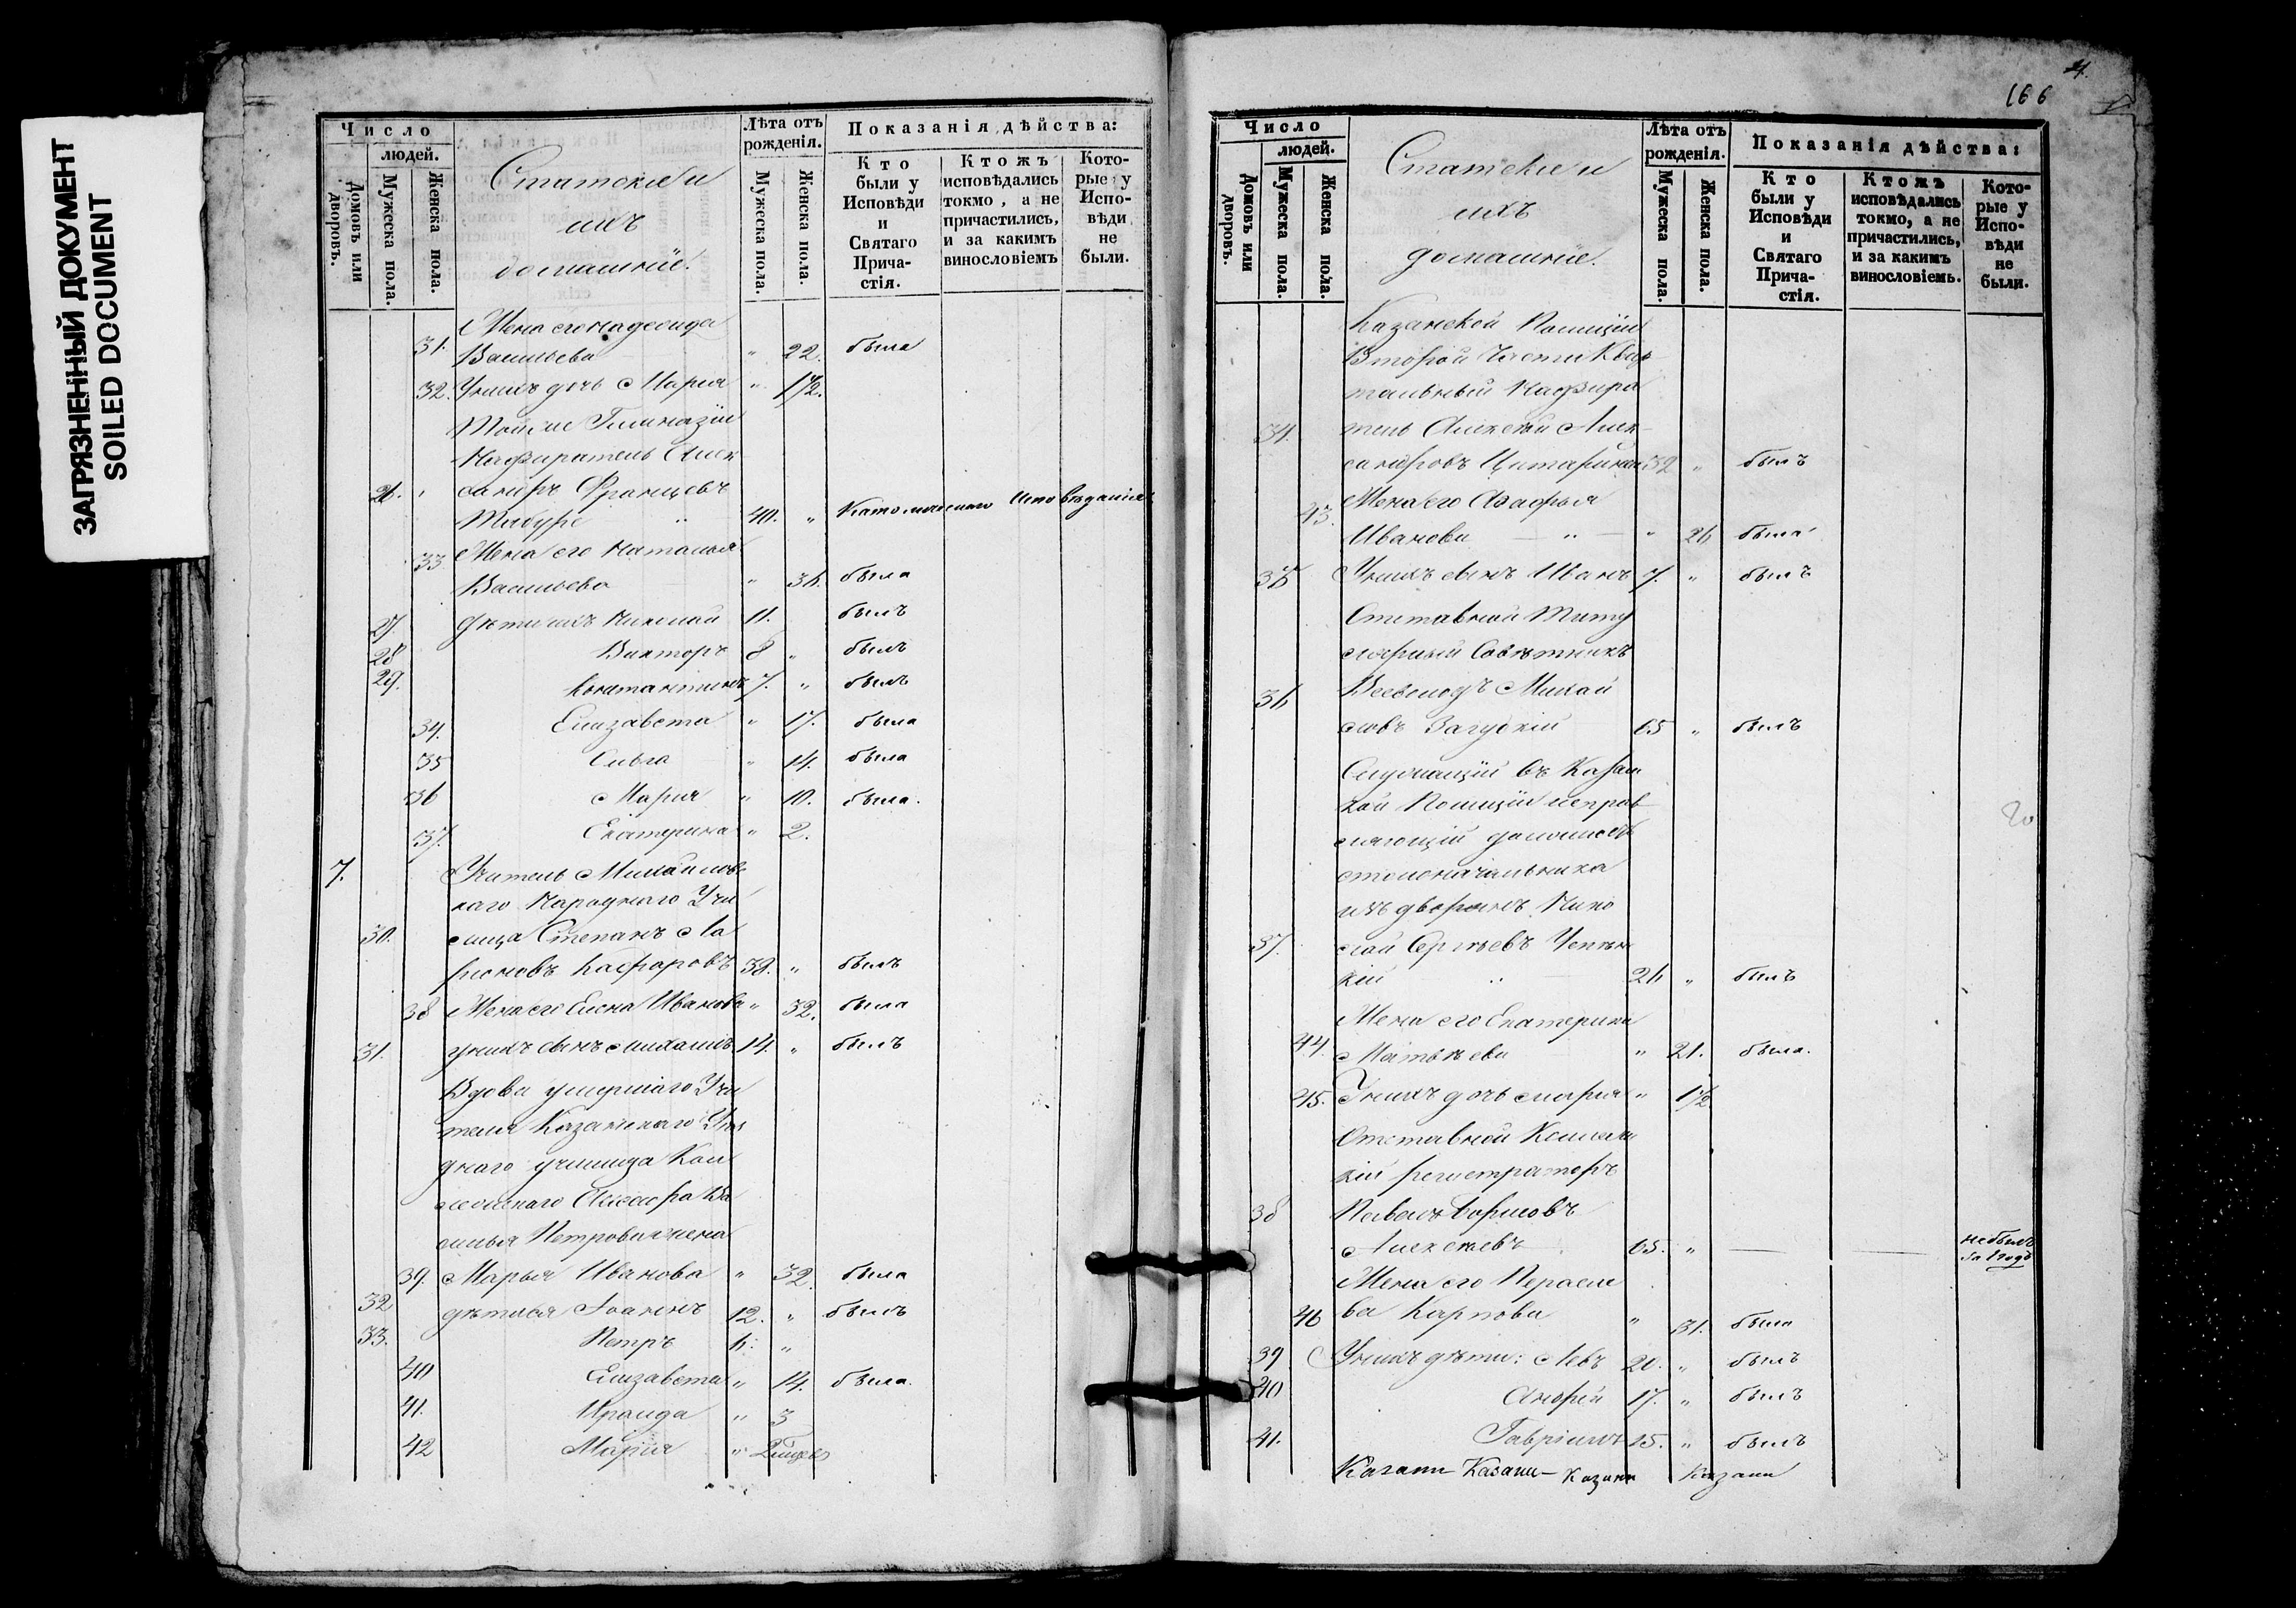 ЗАГРЯЗНЕННЫЙ ДОКУМЕНТ
SOILED DOCUMENT
Число
людей.
Домовъ или дворовъ.
Мужеска пола.
Женска пола.
Статскіе и
ихъ
домашніе.
Лѣта отъ рожденія.
Мужеска пола.
Женска пола.
Показанія дѣйства:
Кто были у Исповѣди и Святаго Причастія.
Ктожъ исповѣдались токмо, а не причастились, и за какимъ винословіемъ
Которые у Исповѣди не были.
Жена его Надежда
31. Васильева " 22. была
32. У нихъ дочь Марія " 1/2.
Той же Гимназіи
Надзиратель Алек
26. сандръ Францовъ
40. " Католическаго Исповѣданія
Жена его Наталья
33 Васильева " 36. была
27. Дѣти ихъ Николай 11. былъ
28 Викторъ 8 " былъ
29. Константинъ 7. " былъ
34. Елизавета " 17. была
35 Ольга " 14. была
36 Марія " 10. была.
37. Екатерина " 2.
7. Учитель Михайловс
каго Народнаго Учи
30. лища Степанъ Ла
ріоновъ 38. " былъ
38 Жена его Елена Иванова " 32. была
31. у нихъ сынъ Михаилъ 14. " былъ
Вдова умершаго Учи
теля Казанскаго Уѣз
днаго училища Кол
лежскаго Ассесора Ва
силья Петровича жена
39. Марья Иванова " 32. была
32 дѣти ея Іоаннъ 12. " былъ
33. Петръ 6. "
40 Елизавета " 14. была.
41. Ираида " 3
42 Марія "
166
Число
людей.
Домовъ или дворовъ.
Мужеска пола.
Женска пола.
Статскіе и
ихъ
домашніе.
Лѣта отъ рожденія.
Мужеска пола.
Женска пола.
Показанія дѣйства:
Кто были у Исповѣди и Святаго Причастія.
Ктожъ исповѣдались токмо, а не причастились, и за какимъ винословіемъ.
Которые у Исповѣди не были.
Казанской Полиціи
Второй Части Квар
тальный Надзира
34. тель Алексѣй Алек
сандровъ 32 " былъ
Жена его Агафья
43. Иванова " 26 была
35 У нихъ сынъ Иванъ 7. " былъ
Отставной Титу
лярный Совѣтникъ
36 Всеволодъ Михай
ловъ 65 " былъ
Служащій въ Казан
кой Полиціи исправ
ляющій должность
столоначальника
изъ дворянъ Нико
37. лай Сергѣевъ
кій 26 " былъ
Жена его Екатерина
44. Матвѣева " 21. была.
45. У нихъ дочь Марія " 1/2
Отставной Коллеж
кій регистраторъ
38 Павелъ Борисовъ
Алексѣевъ 65. " не былъ
Жена его Параске
46 ва Карпова " 51. была
39 У нихъ дѣти: Левъ 20. " былъ
40 Андрей 17. " былъ
41. Гавріилъ 15. " былъ
Казани Казани – Казани Казани